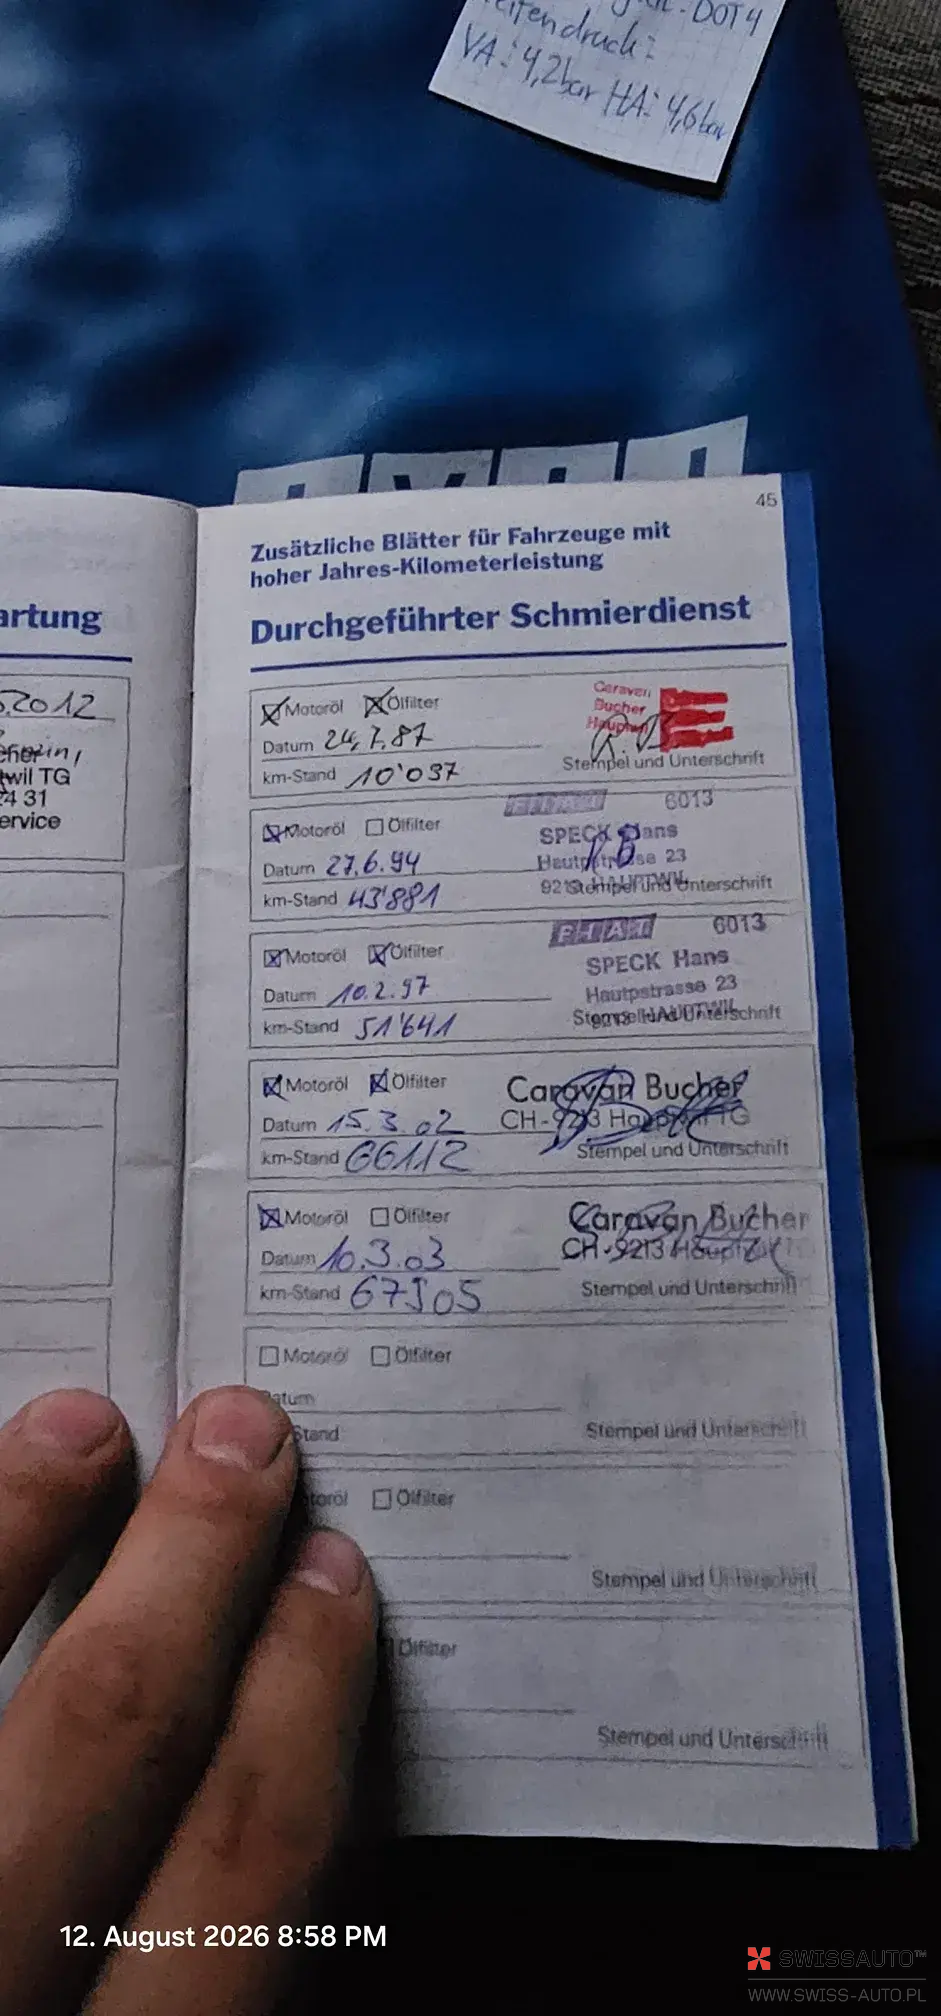 DOT4
VA: 4,2bar HA: 4,6bar
45
Zusätzliche Blätter für Fahrzeuge mit
hoher Jahres-Kilometerleistung
artung
Durchgeführter Schmierdienst
.2012
twil TG
4 31
ervice
Motoröl Ölfilter
Caravan
Bucher
Datum 24.7.87
Stempel und Unterschrift
km-Stand 10'037
FIAT 6013
Motoröl Ölfilter
SPECK Hans
Datum 27.6.94
Hauptstrasse 23
km-Stand 43'881
9213 HAUPTWIL
Stempel und Unterschrift
FIAT 6013
Motoröl Ölfilter
SPECK Hans
Datum 10.2.97
Hautpstrasse 23
km-Stand 51'641
9213 HAUPTWIL
Stempel und Unterschrift
Motoröl Ölfilter
Caravan Bucher
Datum 15.3.02
CH-9213 Hauptwil TG
km-Stand 66112
Stempel und Unterschrift
Motoröl Ölfilter
Caravan Bucher
Datum 10.3.03
CH-9213 Hauptwil TG
km-Stand 67505
Stempel und Unterschrift
Motoröl Ölfilter
atum
Stand
Stempel und Unterschrift
toröl Ölfilter
Stempel und Unterschrift
Ölfilter
Stempel und Unterschrift
12. August 2026 8:58 PM
SWISSAUTO™
WWW.SWISS-AUTO.PL